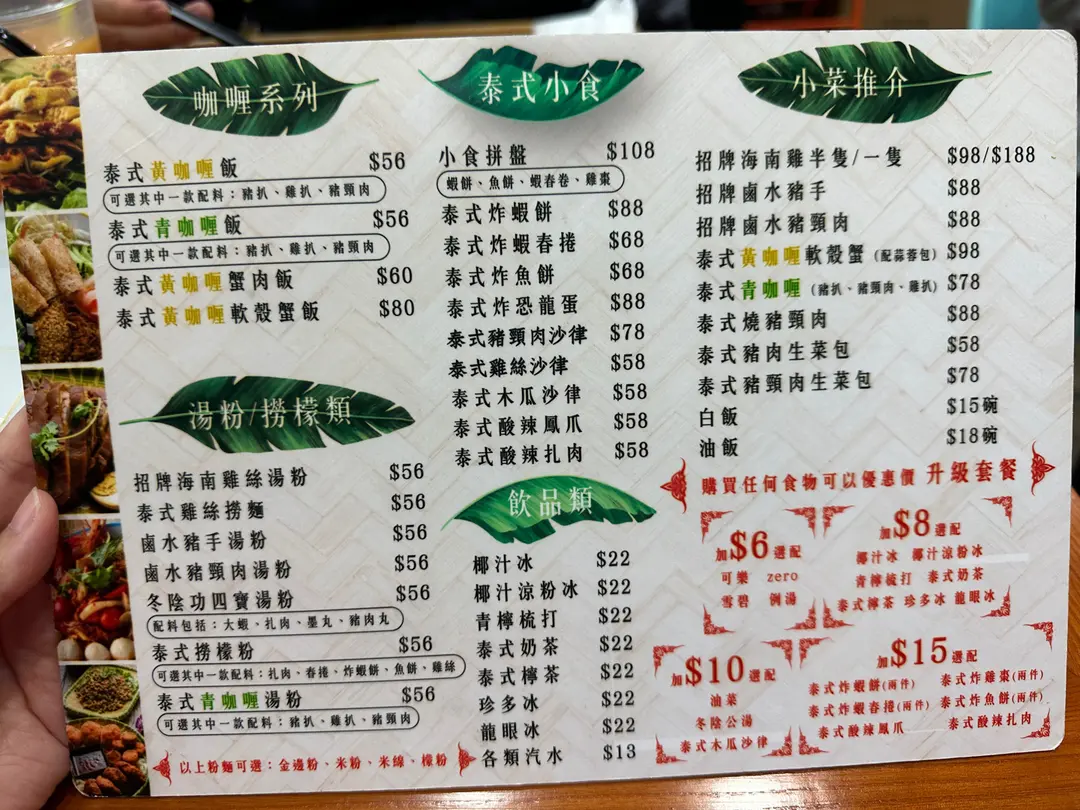 咖喱系列
泰式黃咖喱飯 $56
可選其中一款配料：豬扒、雞扒、豬頸肉
泰式青咖喱飯 $56
可選其中一款配料：豬扒、雞扒、豬頸肉
泰式黃咖喱蟹肉飯 $60
泰式黃咖喱軟殼蟹飯 $80
湯粉/撈檬類
招牌海南雞絲湯粉 $56
泰式雞絲撈麵 $56
鹵水豬手湯粉 $56
鹵水豬頸肉湯粉 $56
冬陰功四寶湯粉 $56
配料包括：大蝦、扎肉、墨丸、豬肉丸
泰式撈檬粉 $56
可選其中一款配料：扎肉、春捲、炸蝦餅、魚餅、雞絲
泰式青咖喱湯粉 $56
可選其中一款配料：豬扒、雞扒、豬頸肉
以上粉麵可選：金邊粉、米粉、米線、檬粉
泰式小食
小食拼盤 $108
蝦餅、魚餅、蝦春卷、雞棗
泰式炸蝦餅 $88
泰式炸蝦春捲 $68
泰式炸魚餅 $68
泰式炸恐龍蛋 $88
泰式豬頸肉沙律 $78
泰式雞絲沙律 $58
泰式木瓜沙律 $58
泰式酸辣鳳爪 $58
泰式酸辣扎肉 $58
飲品類
椰汁冰 $22
椰汁涼粉冰 $22
青檸梳打 $22
泰式奶茶 $22
泰式檸茶 $22
珍多冰 $22
龍眼冰 $22
各類汽水 $13
小菜推介
招牌海南雞半隻/一隻 $98/$188
招牌鹵水豬手 $88
招牌鹵水豬頸肉 $88
泰式黃咖喱軟殼蟹(配蒜蓉包) $98
泰式青咖喱(豬扒、豬頸肉、雞扒) $78
泰式燒豬頸肉 $88
泰式豬肉生菜包 $58
泰式豬頸肉生菜包 $78
白飯 $15碗
油飯 $18碗
購買任何食物可以優惠價 升級套餐
加$6選配
可樂 zero
雪碧 例湯
加$8選配
椰汁冰 椰汁涼粉冰
青檸梳打 泰式奶茶
泰式檸茶 珍多冰 龍眼冰
加$10選配
油菜
冬陰公湯
泰式木瓜沙律
加$15選配
泰式炸蝦餅(兩件) 泰式炸雞棗(兩件)
泰式炸蝦春捲(兩件) 泰式炸魚餅(兩件)
泰式酸辣鳳爪 泰式酸辣扎肉